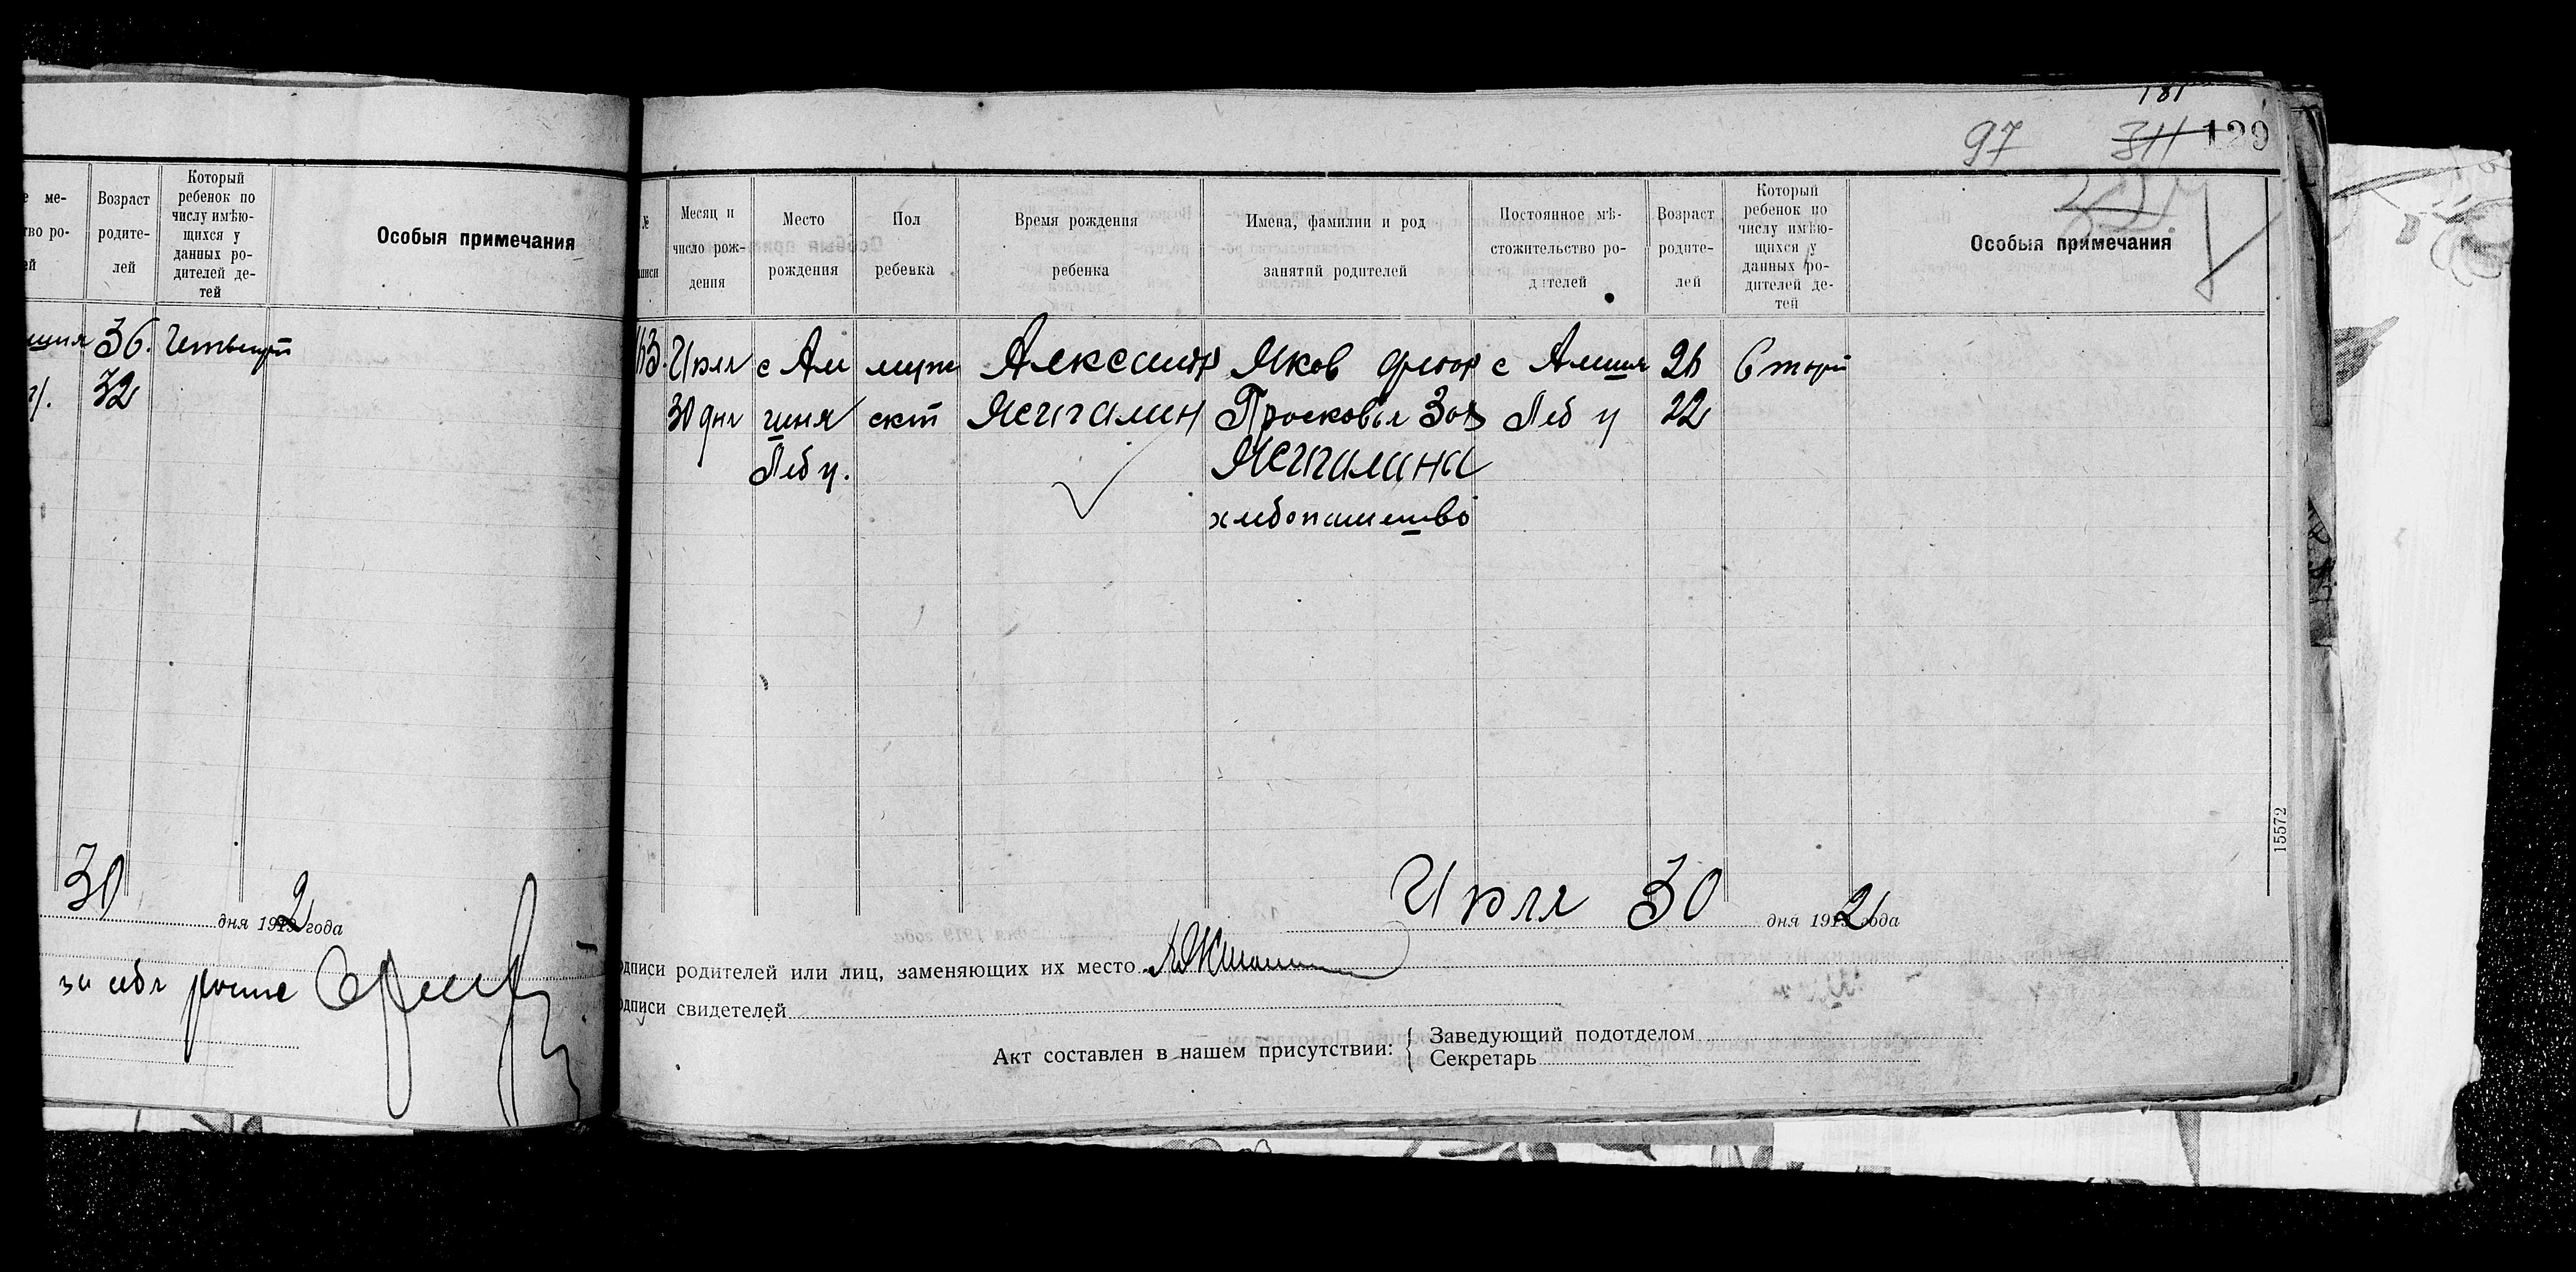 181
97 311 129
е ме-
тво ро-
ей
Возраст
родите-
лей
Который
ребенок по
числу имѣю-
щихся у
данных ро-
дителей де-
тей
Особыя примечания
36. Четверт
32
30 дня 1919 2 года
за себя роспис
№
Месяц и
число рож-
дения
Место
рождения
Пол
ребенка
Время рождения
ребенка
Имена, фамилии и род
занятий родителей
Постоянное мѣ-
стожительство ро-
дителей
Возраст
родите-
лей
Который
ребенок по
числу имѣю-
щихся у
данных ро-
дителей де-
тей
Особыя примечания
113. Июля с Ам мужс Александр Яков Федор с Амшня 26 Второй
30 дня шня ског Ясигалин Просковья Зах Леб у 22
Леб у. Ясигалина
хлебопашество
Июля 30 дня 1919 2 года
одписи родителей или лиц, заменяющих их место
одписи свидетелей
Акт составлен в нашем присутствии: { Заведующий подотделом
Секретарь
15572